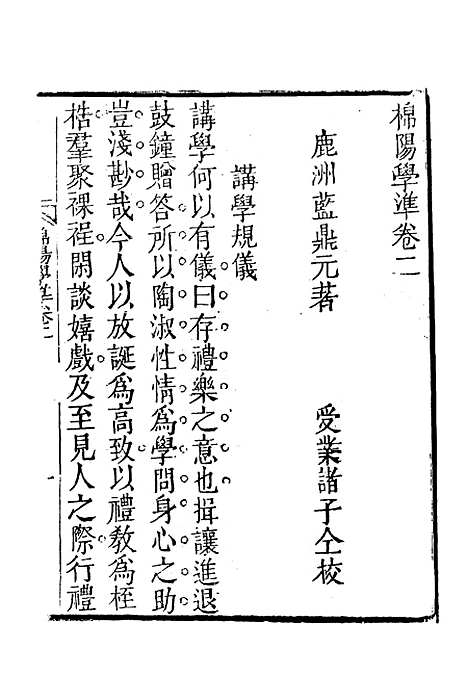 棉陽學準卷二
鹿洲藍鼎元著　受業諸子仝校
講學規儀
講學何以有儀曰存禮樂之意也揖讓進退
鼓鐘贈答所以陶淑性情爲學問身心之助
豈淺尠哉今人以放誕爲高致以禮敎爲桎
梏羣聚裸裎閑談嬉戲及至見人之際行禮
棉陽學準卷二
一